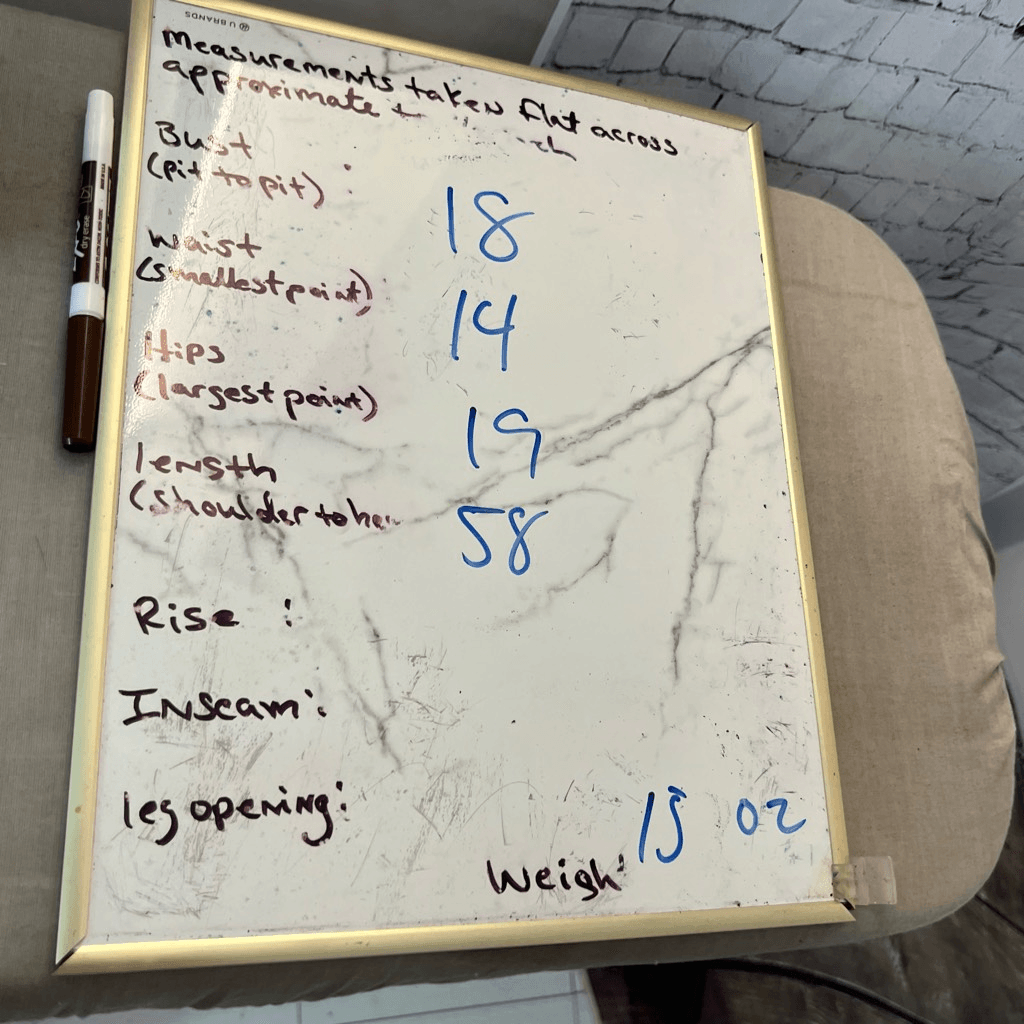 U BRANDS
Measurements taken flat across
approximate
Bust
(pit to pit) :
18
Waist
(smallest point)
14
Hips
(largest point)
19
length
(Shoulder to
58
Rise :
Inseam :
leg opening :
15 oz
Weigh
dry erase